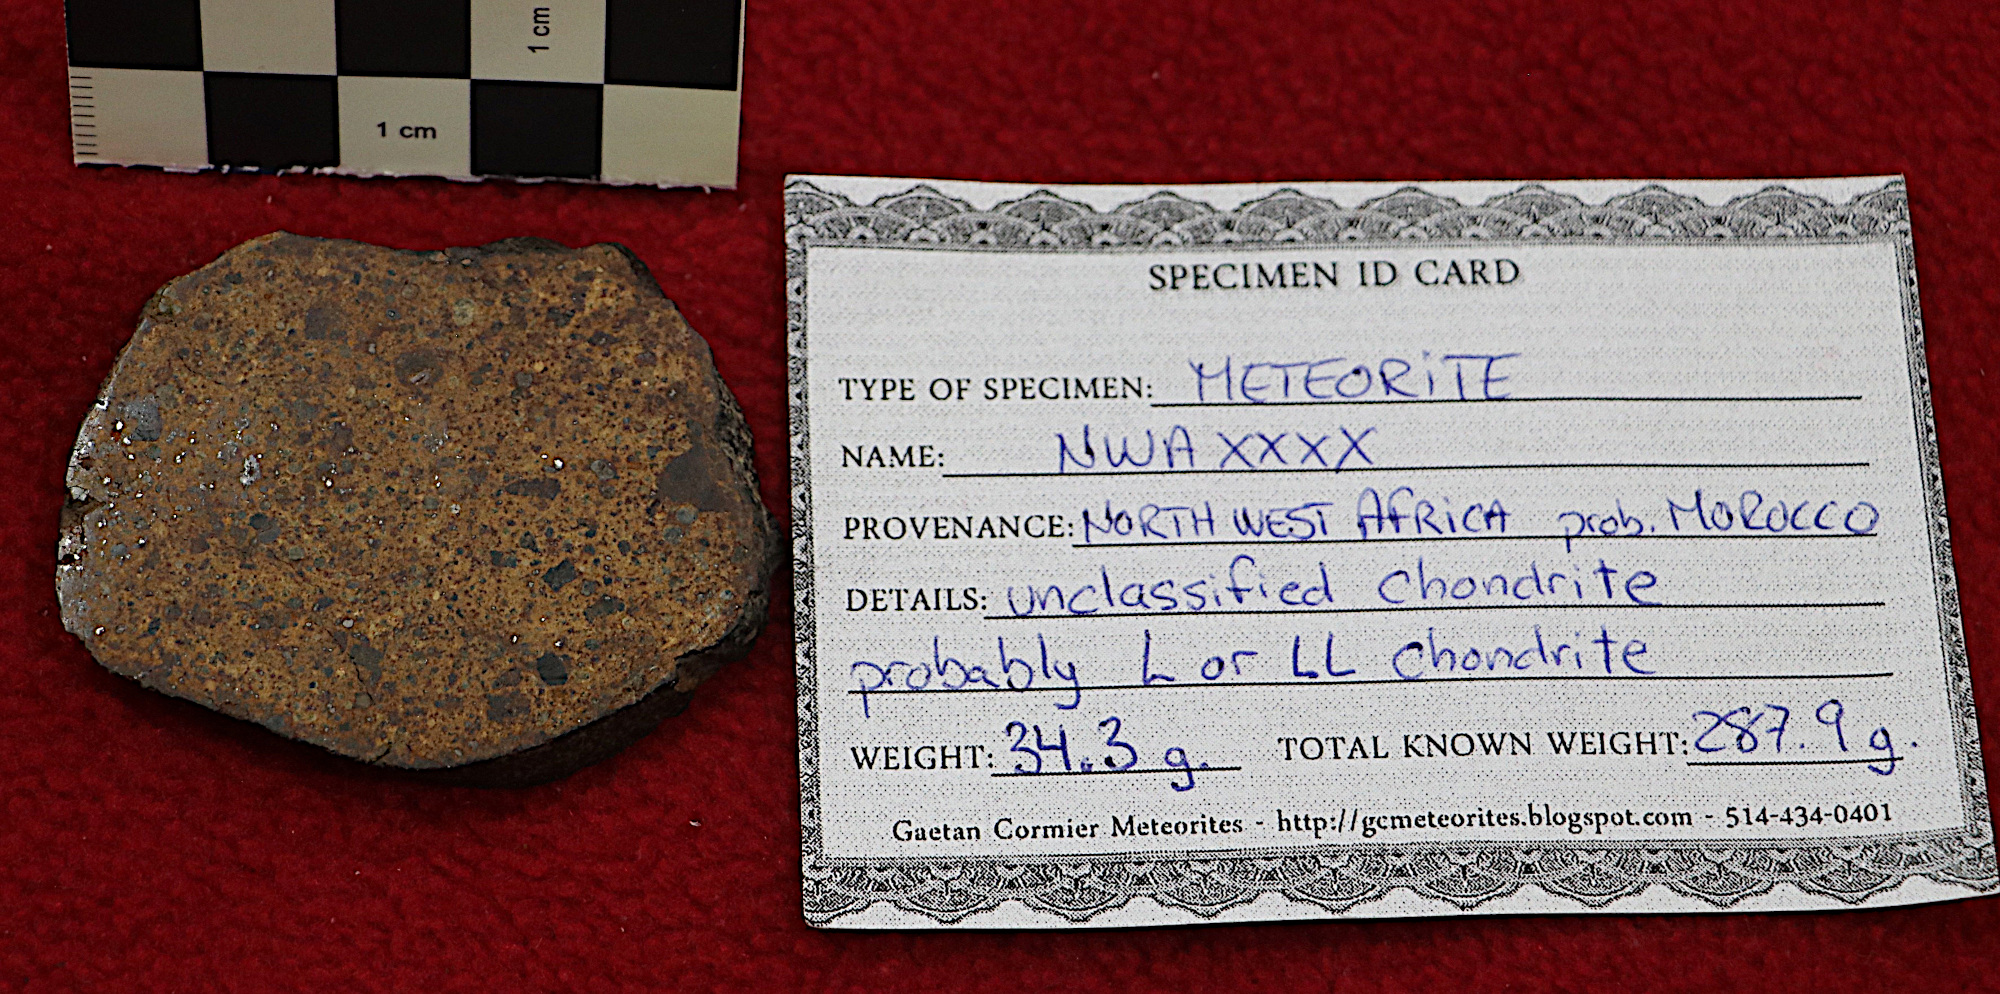 1 cm
1 cm
SPECIMEN ID CARD
TYPE OF SPECIMEN: METEORiTE
NAME: NWA XXXX
PROVENANCE: NORTH WEST AFRiCA prob. MOROCCO
DETAILS: unclassified chondrite
probably L or LL chondrite
WEIGHT: 34.3 g. TOTAL KNOWN WEIGHT: 287.9 g.
Gaetan Cormier Meteorites - http://gcmeteorites.blogspot.com - 514-434-0401